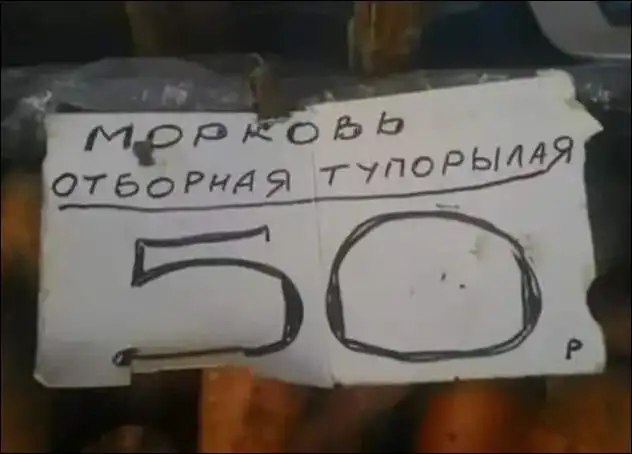 МОРКОВЬ
ОТБОРНАЯ ТУПОРЫЛАЯ
50 Р